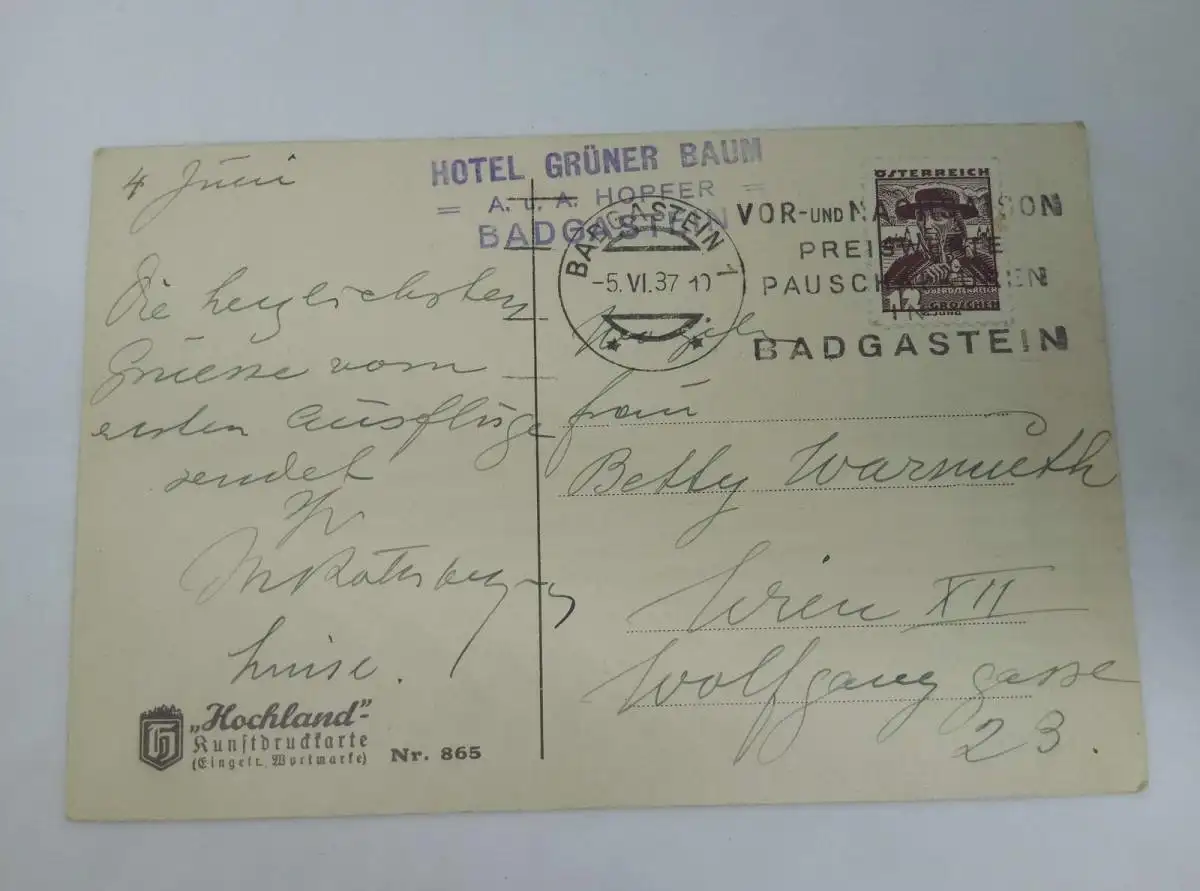 4 Juni
HOTEL GRÜNER BAUM
= A. u. A. HOPFER =
BADGASTEIN
BADGASTEIN 1
-5.VI.37
VOR- UND NACHSAISON
PREISWERTE
PAUSCHALKUREN
IN
BADGASTEIN
ÖSTERREICH
12
OBERÖSTERREICH
GROSCHEN
Die herzlichsten
Grüsse vom
ersten Ausfluge
sendet
Luise.
Frau
Betty Warmuth
Wien XII
Wolfganggasse
23.
"Hochland"-
Kunstdruckkarte
(Eingetr. Wortmarke)
Nr. 865